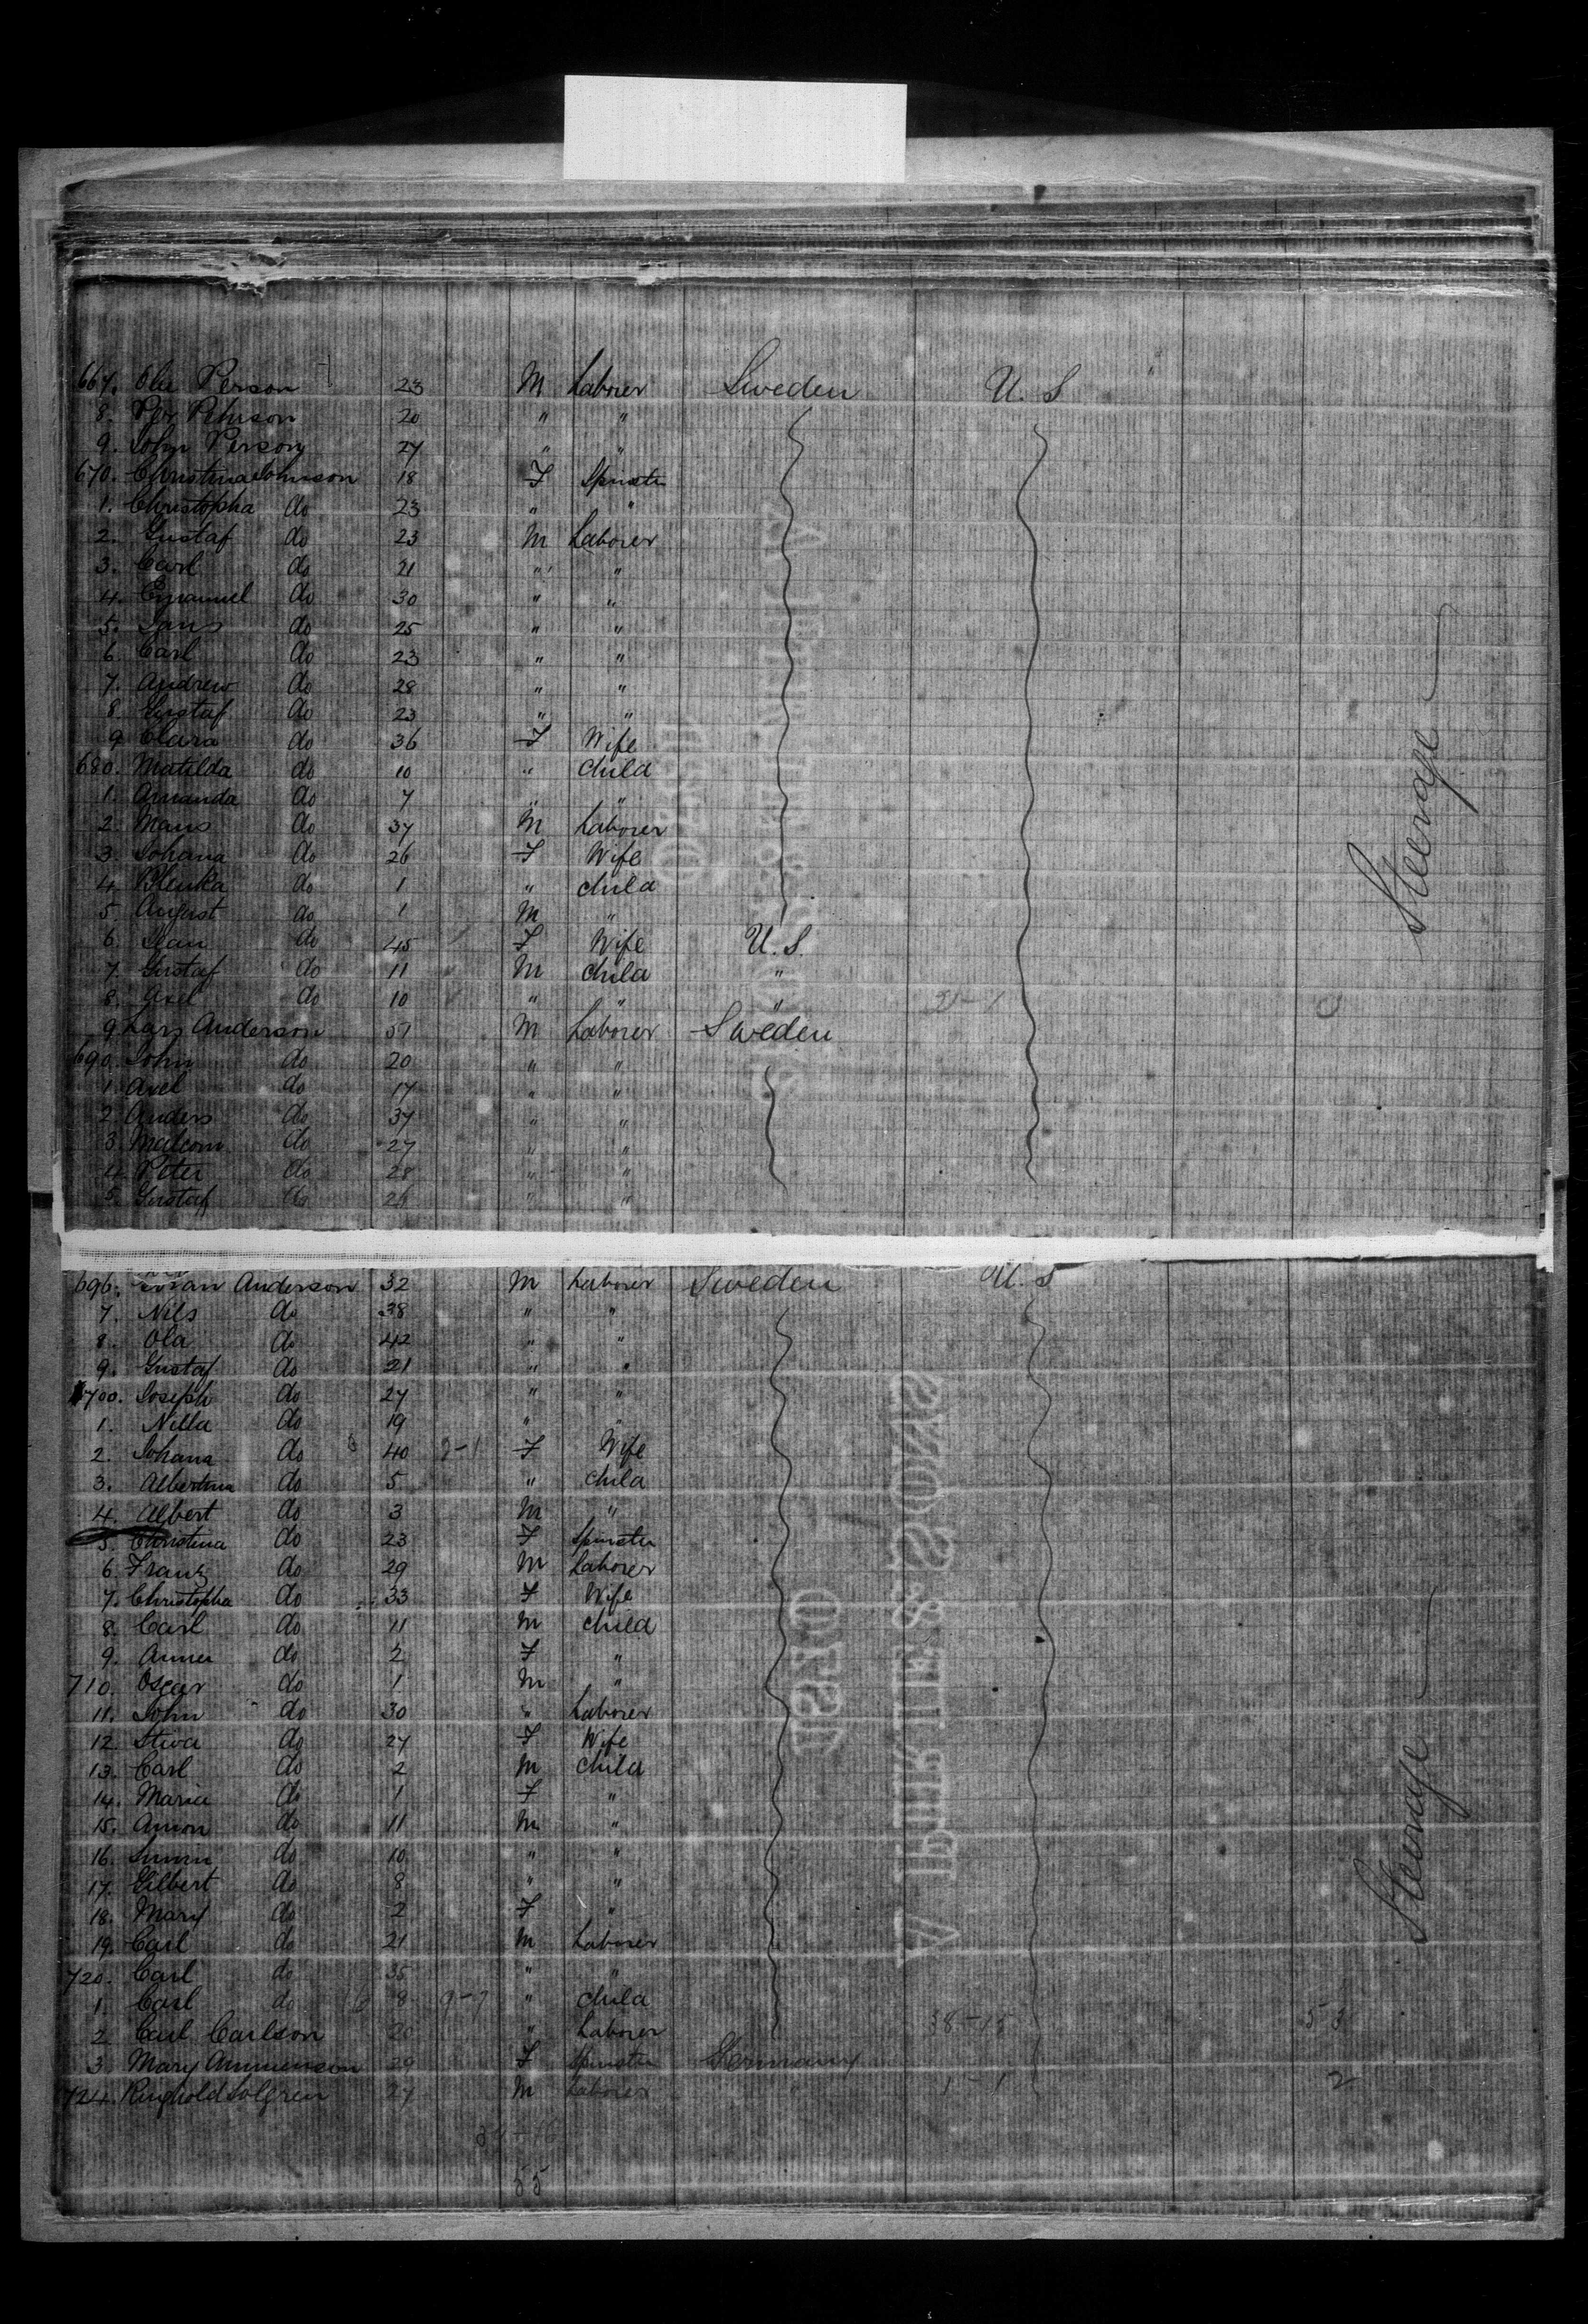 667. Ole Person 23 M Laborer Sweden U. S
8. Per Pehrson 20 " "
9. John Person 27 " "
670. Christina Johnson 18 F Spinster
1. Christopha do 23 " "
2. Gustaf do 23 M Laborer
3. Carl do 21 " "
4. Emanuel do 30 " "
5. Jans do 25 " "
6. Carl do 23 " "
7. Andrew do 28 " "
8. Gustaf do 23 " "
9 Clara do 36 F Wife
680. Matilda do 10 " child
1. Amanda do 7 " "
2. Mans do 37 M Laborer
3. Johana do 26 F Wife
4. do 1 " child
5. August do 1 M "
6. do 45 F Wife U. S.
7. Gustaf do 11 M child "
8. Axel do 10 " " "
9. Lars Anderson 57 M Laborer Sweden
690. John do 20 " "
1. Axel do 17 " "
2. Anders do 37 " "
3. Malcom do 27 " "
4. Peter do 28 " "
5. Gustaf do 26 " "
Steerage
696. Anderson 32 M Laborer Sweden U. S
7. Nils do 38 " "
8. Ola do 42 " "
9. Gustaf do 21 " "
700. Joseph do 27 " "
1. Nilla do 19 " "
2. Johana do 40 F Wife
3. Albertina do 5 " child
4. Albert do 3 M "
5. Christina do 23 F Spinster
6. Franz do 29 M Laborer
7. Christopha do 33 F Wife
8. Carl do 11 M child
9. Anna do 2 F "
710. Oscar do 1 M "
11. John do 30 " Laborer
12. Stina do 27 F Wife
13. Carl do 2 M child
14. Maria do 1 F "
15. Amon do 11 M "
16. do 10 " "
17. Gilbert do 8 " "
18. Mary do 2 F "
19. Carl do 21 M Laborer
720. Carl do 35 " "
1. Carl do 8 9-7 " child
2. Carl Carlson 20 " Laborer 38-15 53
3. Mary 29 F Spinster Germany
724. 27 M Laborer " 1-1 2
55
Steerage